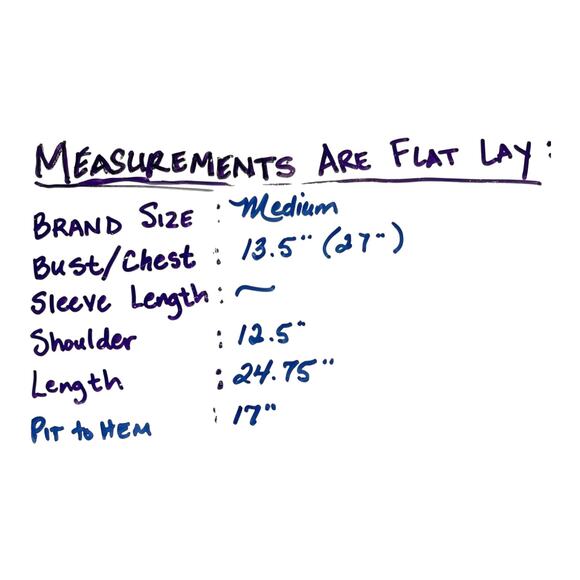 MEASUREMENTS ARE FLAT LAY:
BRAND SIZE : Medium
Bust/Chest : 13.5" (27")
Sleeve Length : ~
Shoulder : 12.5"
Length : 24.75"
PIT to HEM : 17"